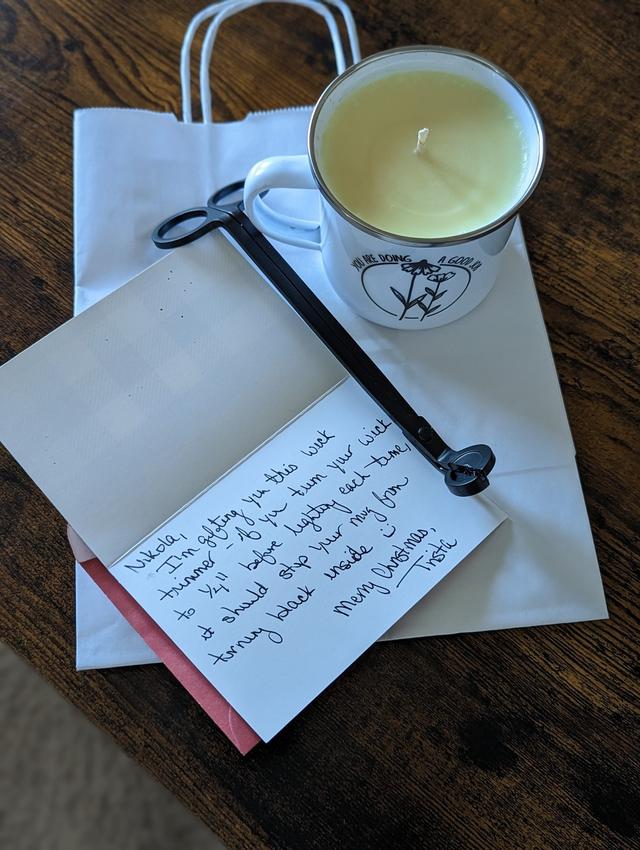 YOU ARE DOING A GOOD JOB
Nikola,
I'm gifting you this wick
trimmer - if you trim your wick
to 1/4" before lighting each time,
it should stop your mug from
turning black inside :)
Merry Christmas,
Trista